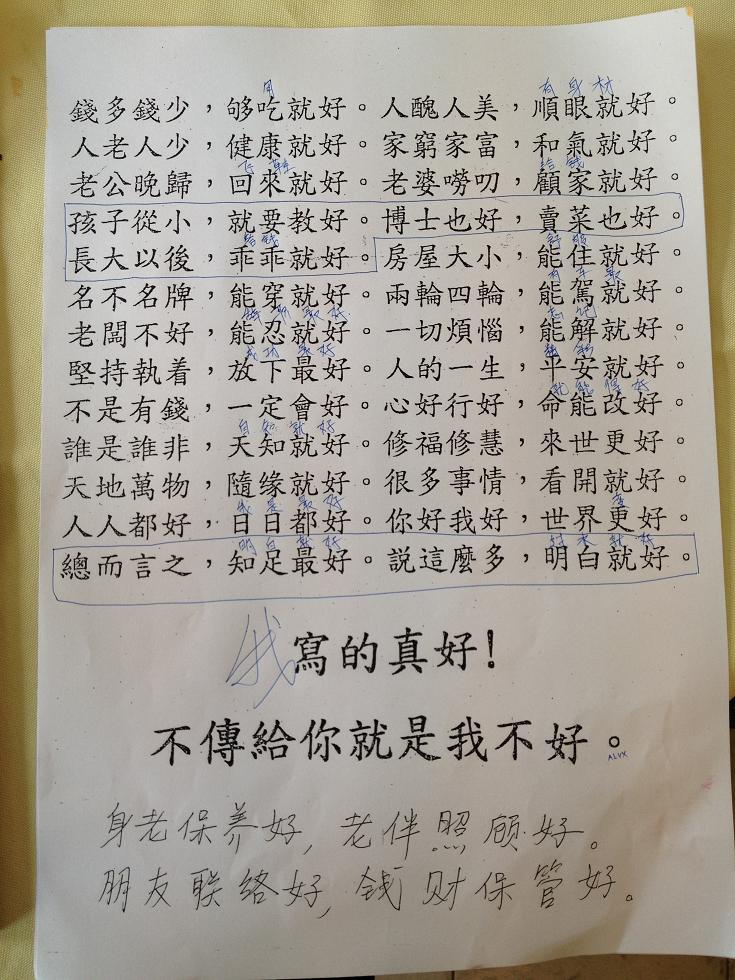 用 有身材
錢多錢少，够吃就好。人醜人美，順眼就好。
人老人少，健康就好。家窮家富，和氣就好。
給錢
老公晚歸，回來就好。老婆嘮叨，顧家就好。
孩子從小，就要教好。博士也好，賣菜也好。
舒服
長大以後，乖乖就好。房屋大小，能住就好。
名不名牌，能穿就好。兩輪四輪，能駕就好。
老闆不好，能忍就好。一切煩惱，能解就好。
成功最好
堅持執着，放下最好。人的一生，平安就好。
不是有錢，一定會好。心好行好，命能改好。
自知就好
誰是誰非，天知就好。修福修慧，來世更好。
天地萬物，隨缘就好。很多事情，看開就好。
我是最好
人人都好，日日都好。你好我好，世界更好。
明白就好
總而言之，知足最好。説這麼多，明白就好。
我寫的真好!
不傳給你就是我不好。
ALVX
身老保养好，老伴照顾好。
朋友联络好，钱财保管好。